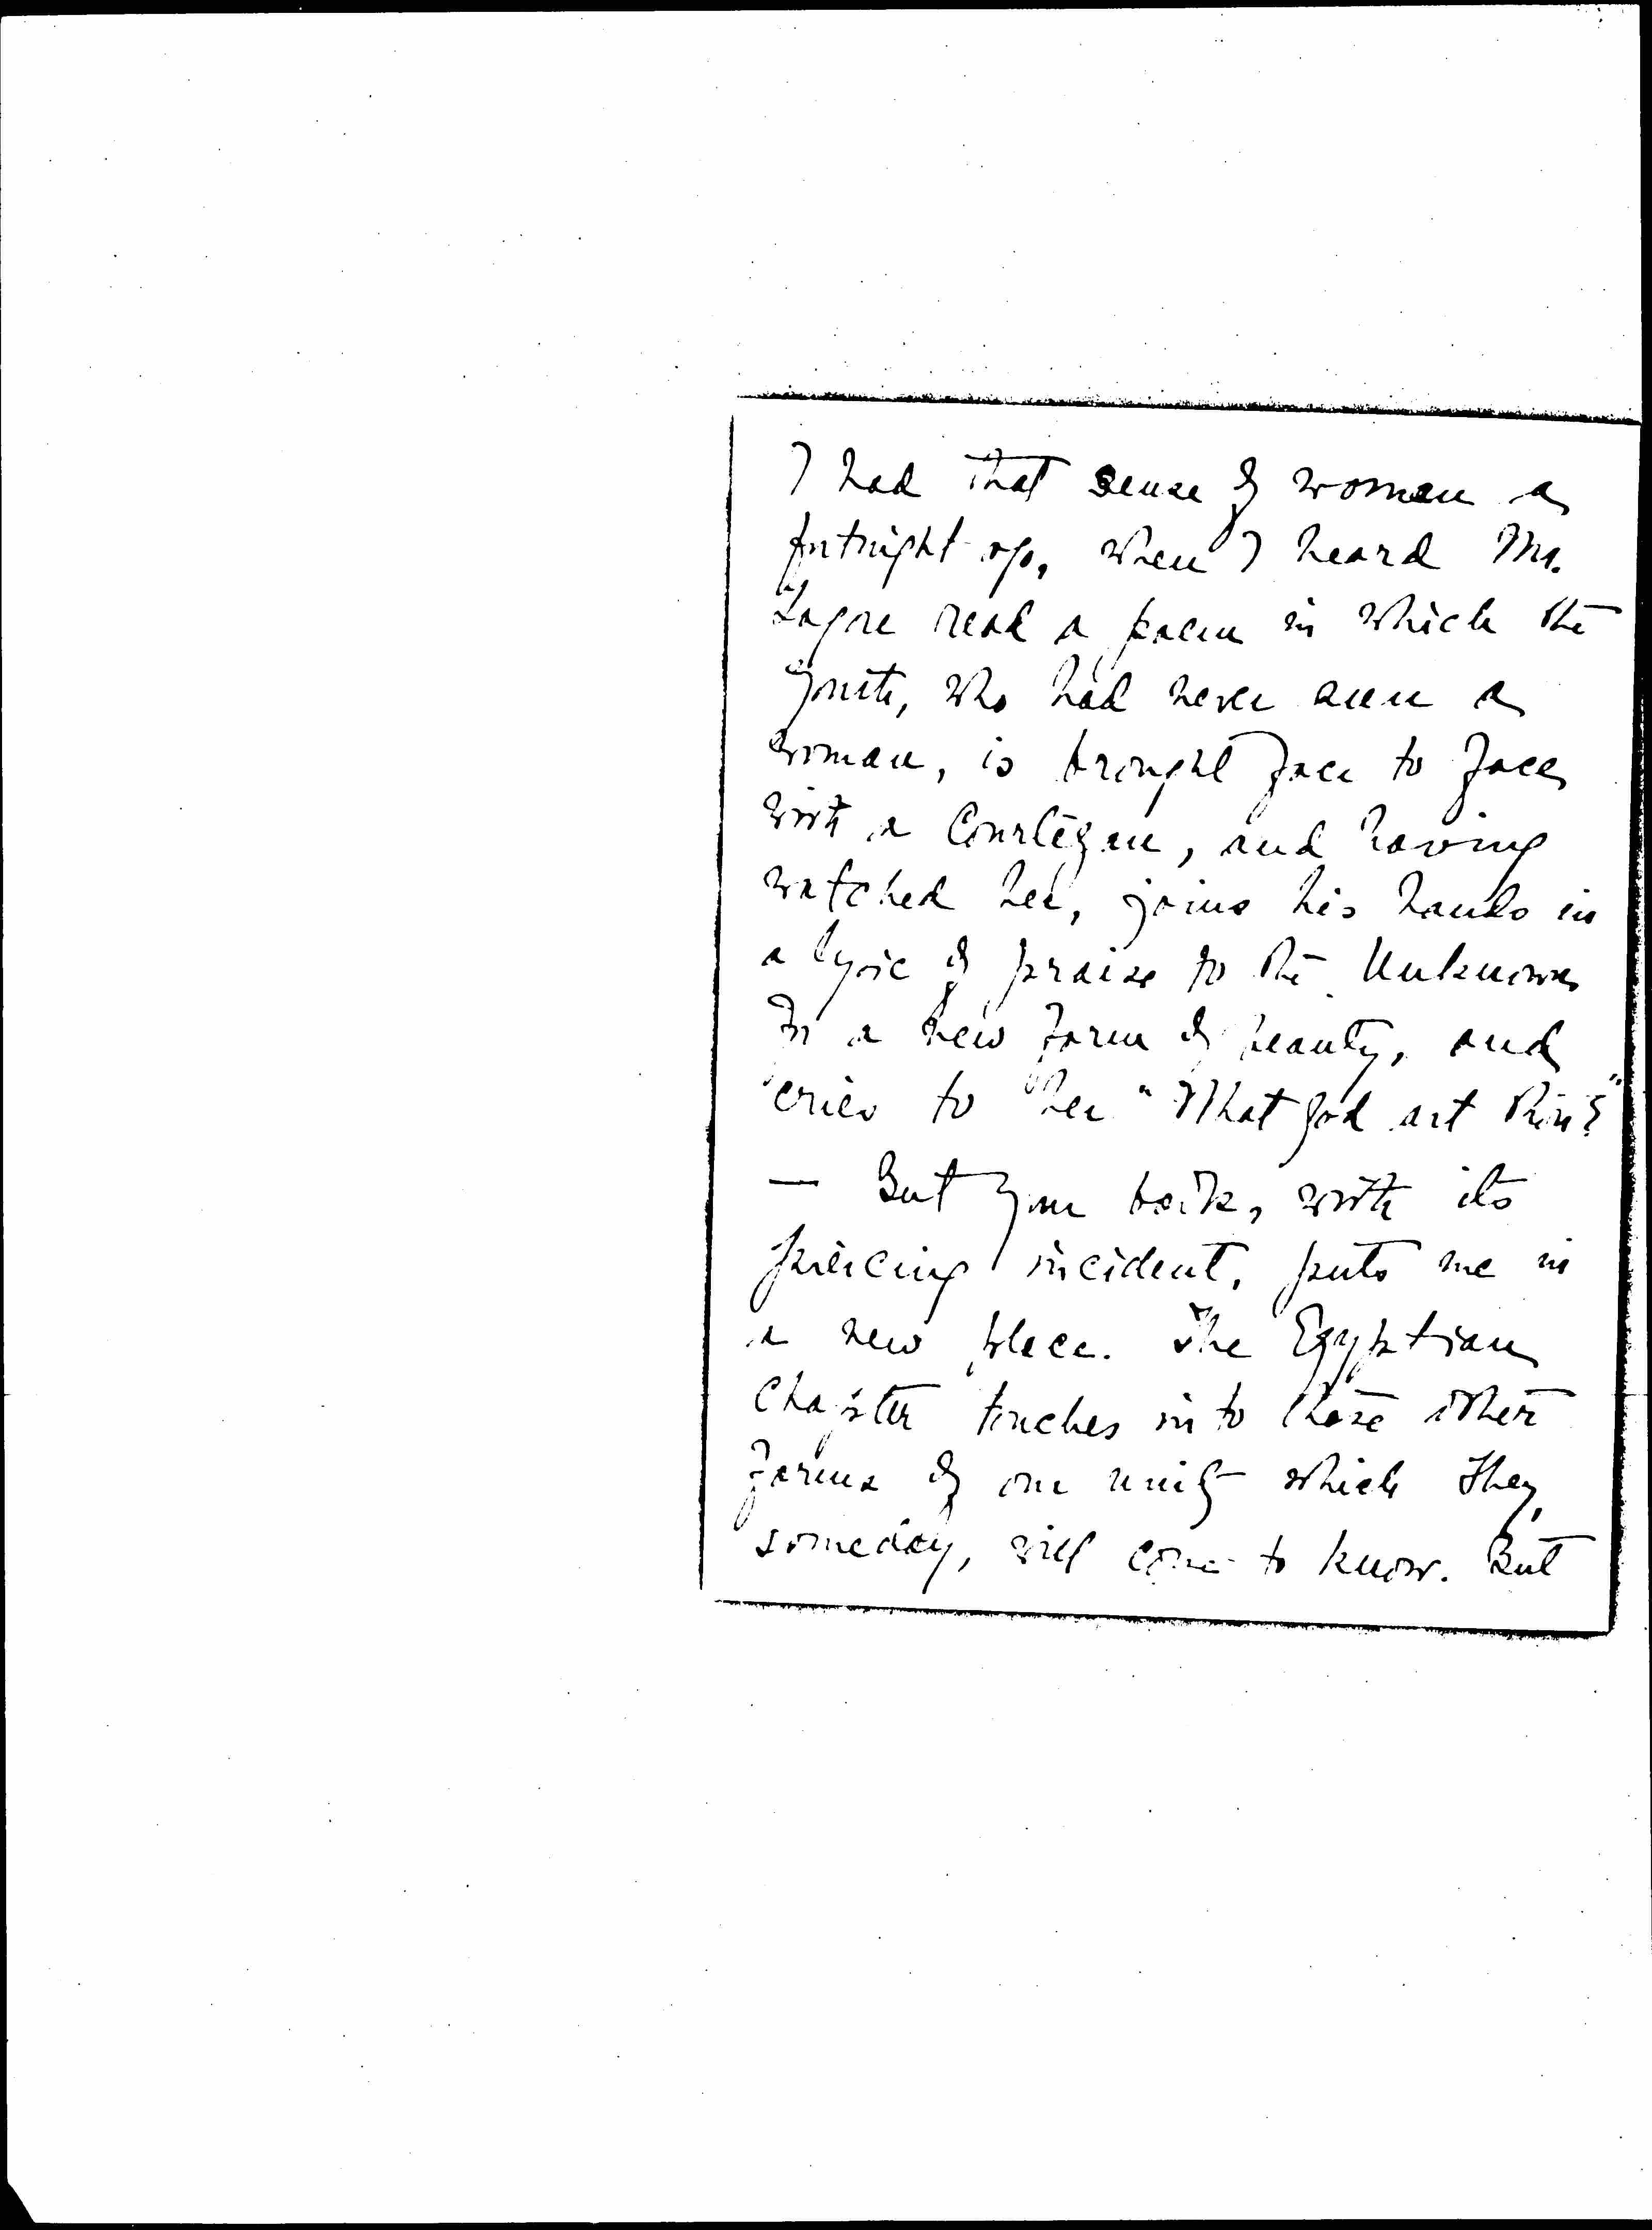 I had that sense of woman a
fortnight ago, when I heard Mr.
Tagore read a poem in which the
youth, who had never seen a
woman, is brought face to face
with a Courtezan, and having
watched her, joins his hands in
a lyric of praise to the Unknown
for a new form of beauty, and
cries to her "What god art thou?"
— But your book, with its
piercing incident, puts me in
a new place. The Egyptian
chapter touches into those other
forms of our unity which they,
someday, will come to know. But